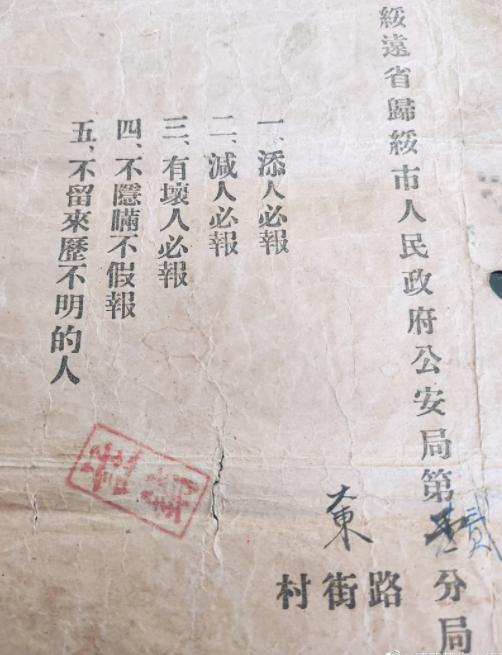 綏遠省歸綏市人民政府公安局第貳分局
大東
村街路
一、添人必報
二、減人必報
三、有壞人必報
四、不隱瞞不假報
五、不留來歷不明的人